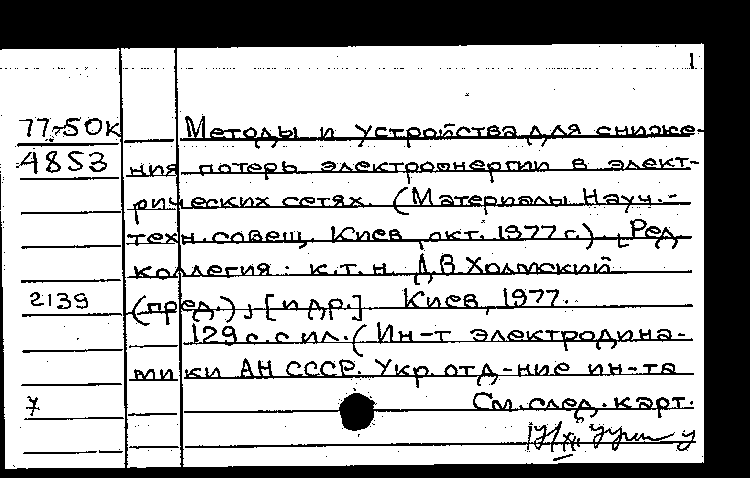 1
77-50к Методы и устройства для сниже-
4853 ния потерь электроэнергии в элект-
рических сетях. (Материалы Науч.-
техн. совещ. Киев, окт. 1977 г.). [Ред.
коллегия: к.т.н. Д.В. Холмский
2139 (пред.), [и др.] Киев, 1977.
129 с. с ил. (Ин-т электродина-
мики АН СССР. Укр. отд-ние ин-та
7 См. след. карт.